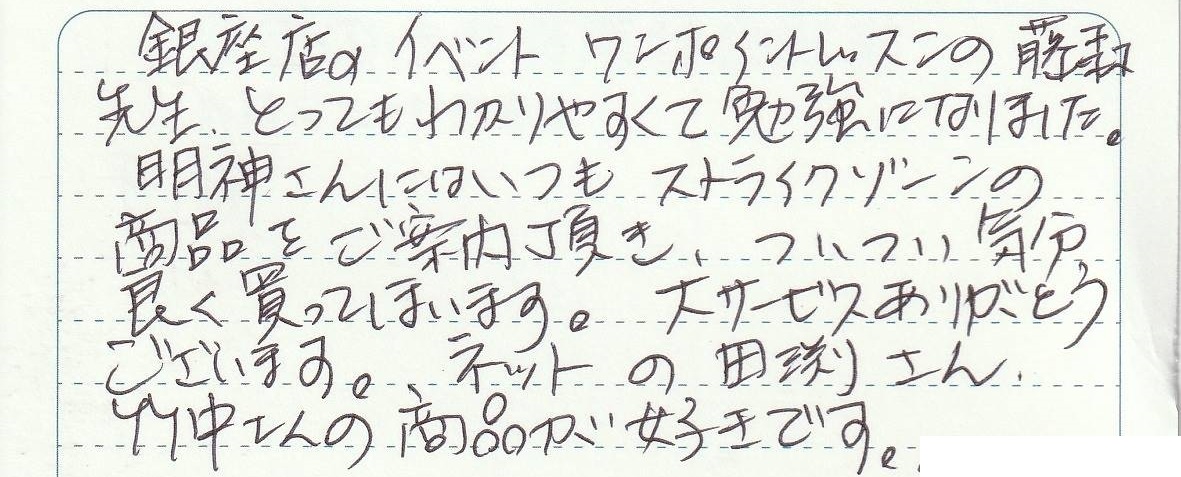 銀座店の イベント ワンポイントレッスンの 藤
先生、とってもわかりやすくて勉強になりました。
明神さんにはいつも ストライクゾーンの
商品を ご案内頂き、ついつい 気分
良く 買ってしまいます。 大サービスありがとう
ございます。、ネットの 田渕さん、
竹中さんの 商品が 好きです。